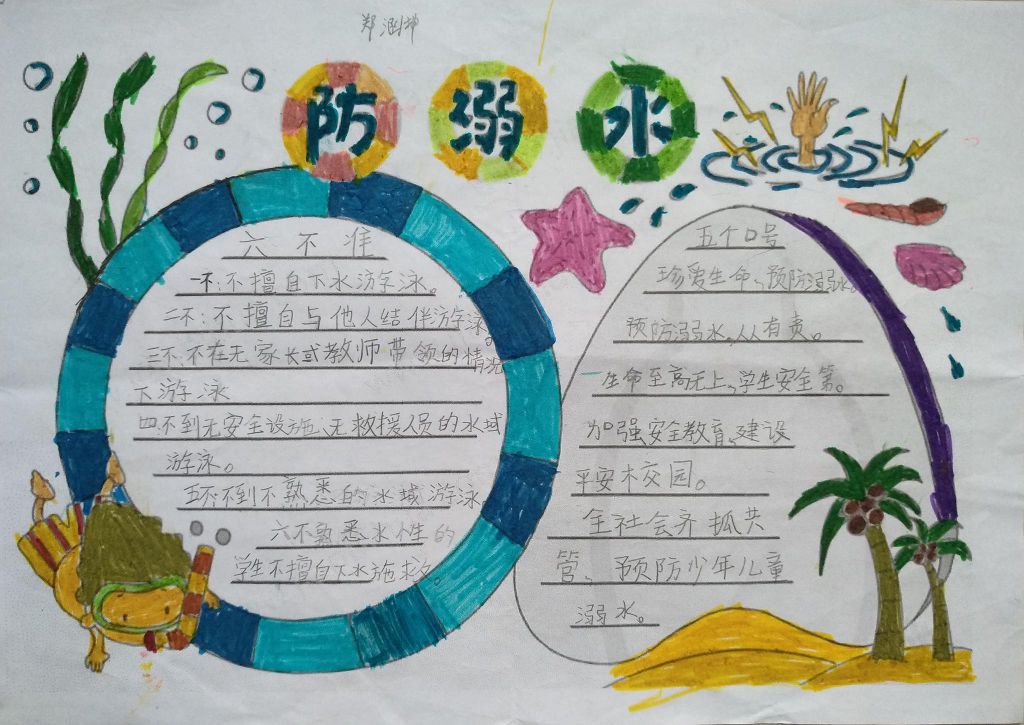 郑涵坤
防溺水
六不准
一不:不擅自下水游泳。
二不:不擅自与他人结伴游泳。
三不:不在无家长或教师带领的情况
下游泳
四:不到无安全设施、无救援人员的水域
游泳。
五不:不到不熟悉的水域游泳
六不熟悉水性的
学生不擅自下水施救。
五个口号
珍爱生命、预防溺水。
预防溺水,从从有责。
一生命至高无上、学生安全第。
加强安全教育、建设
平安木交园。
全社会齐抓共
管、预防少年儿童
溺水。